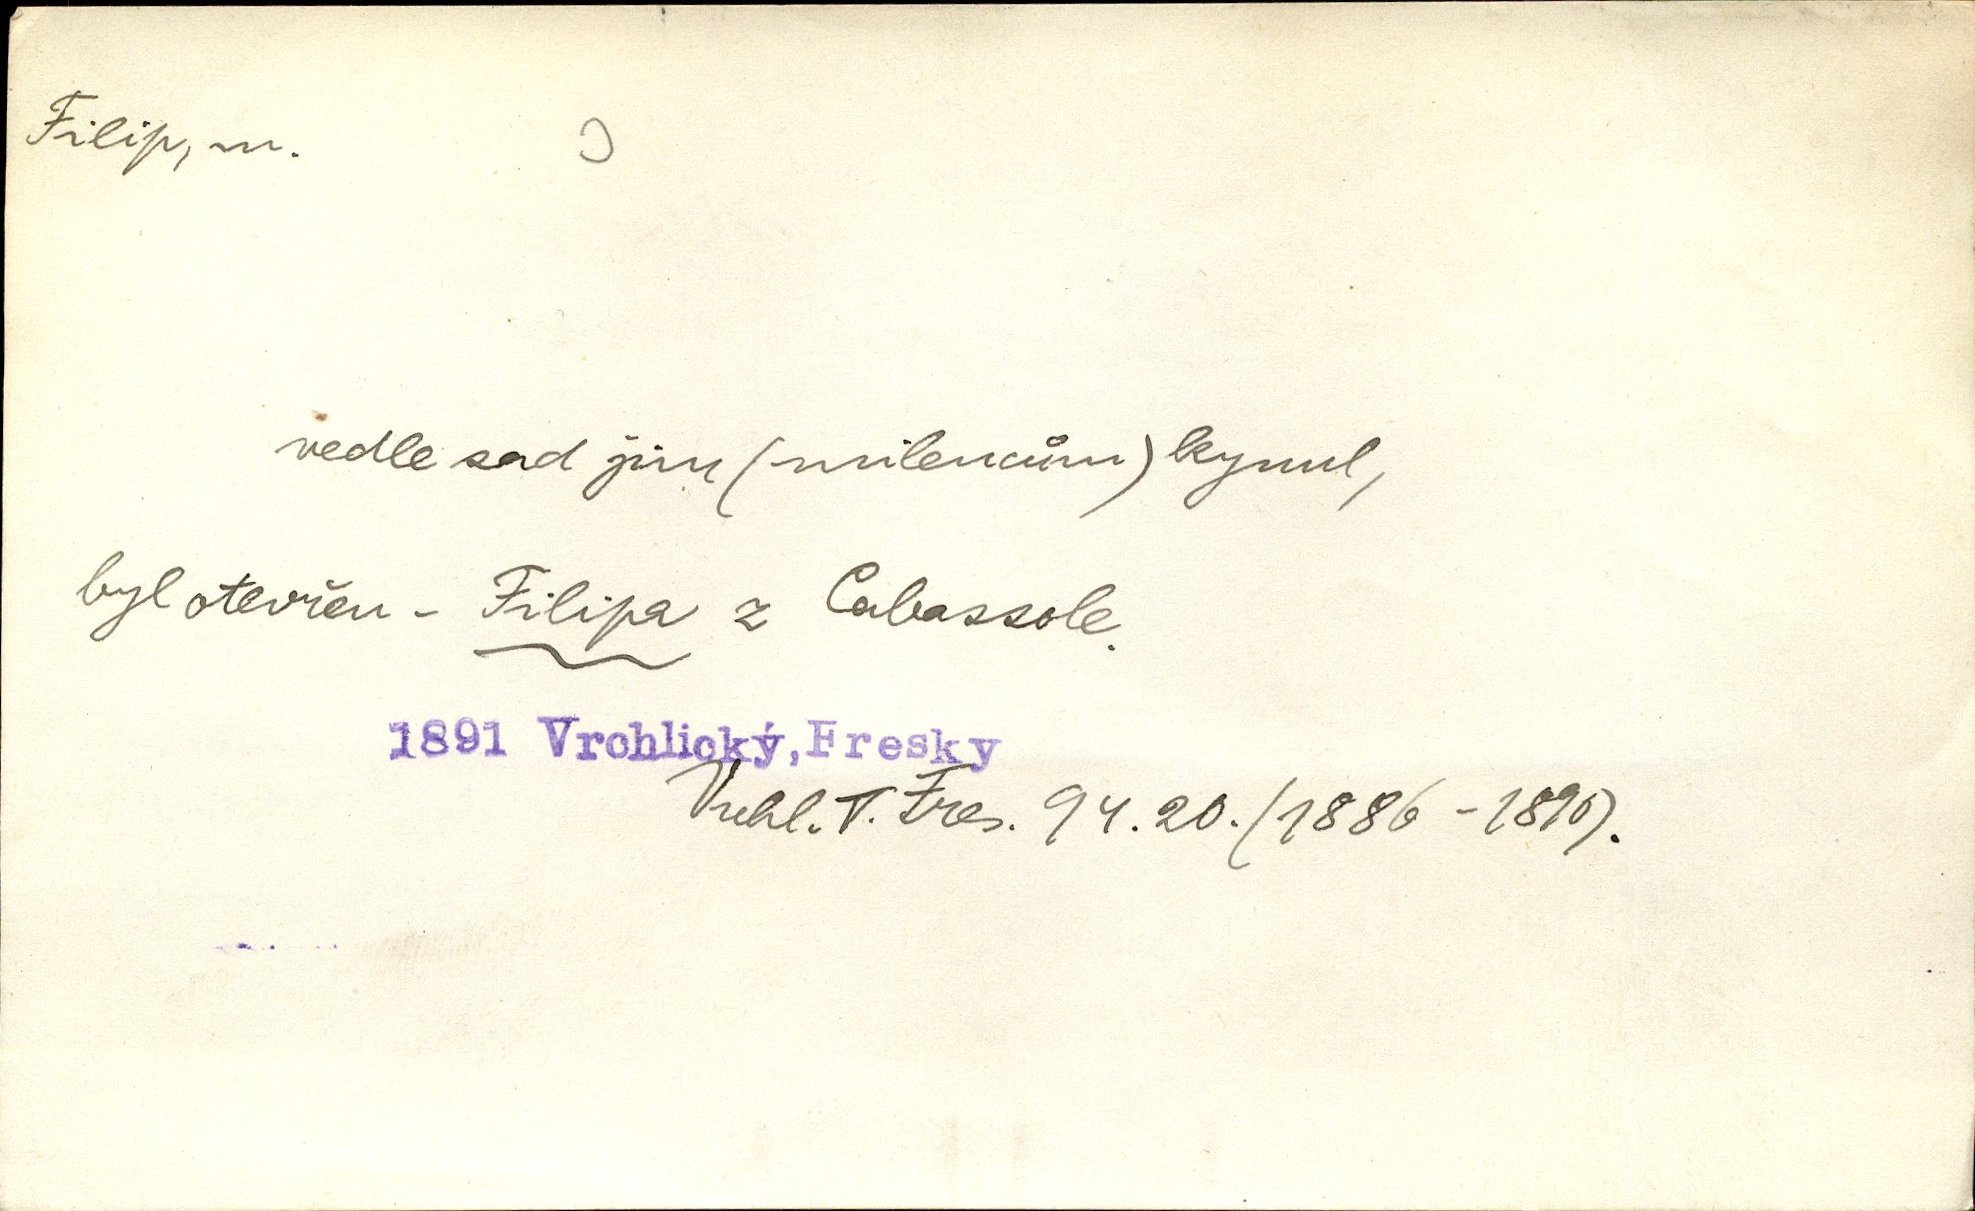 Filip, m.
vedle sad jim (milencům) kynul,
byl otevřen - Filipa z Cabassole.
1891 Vrchlický, Fresky
Vrchl. T. Fres. 94. 20. (1886 - 1890).